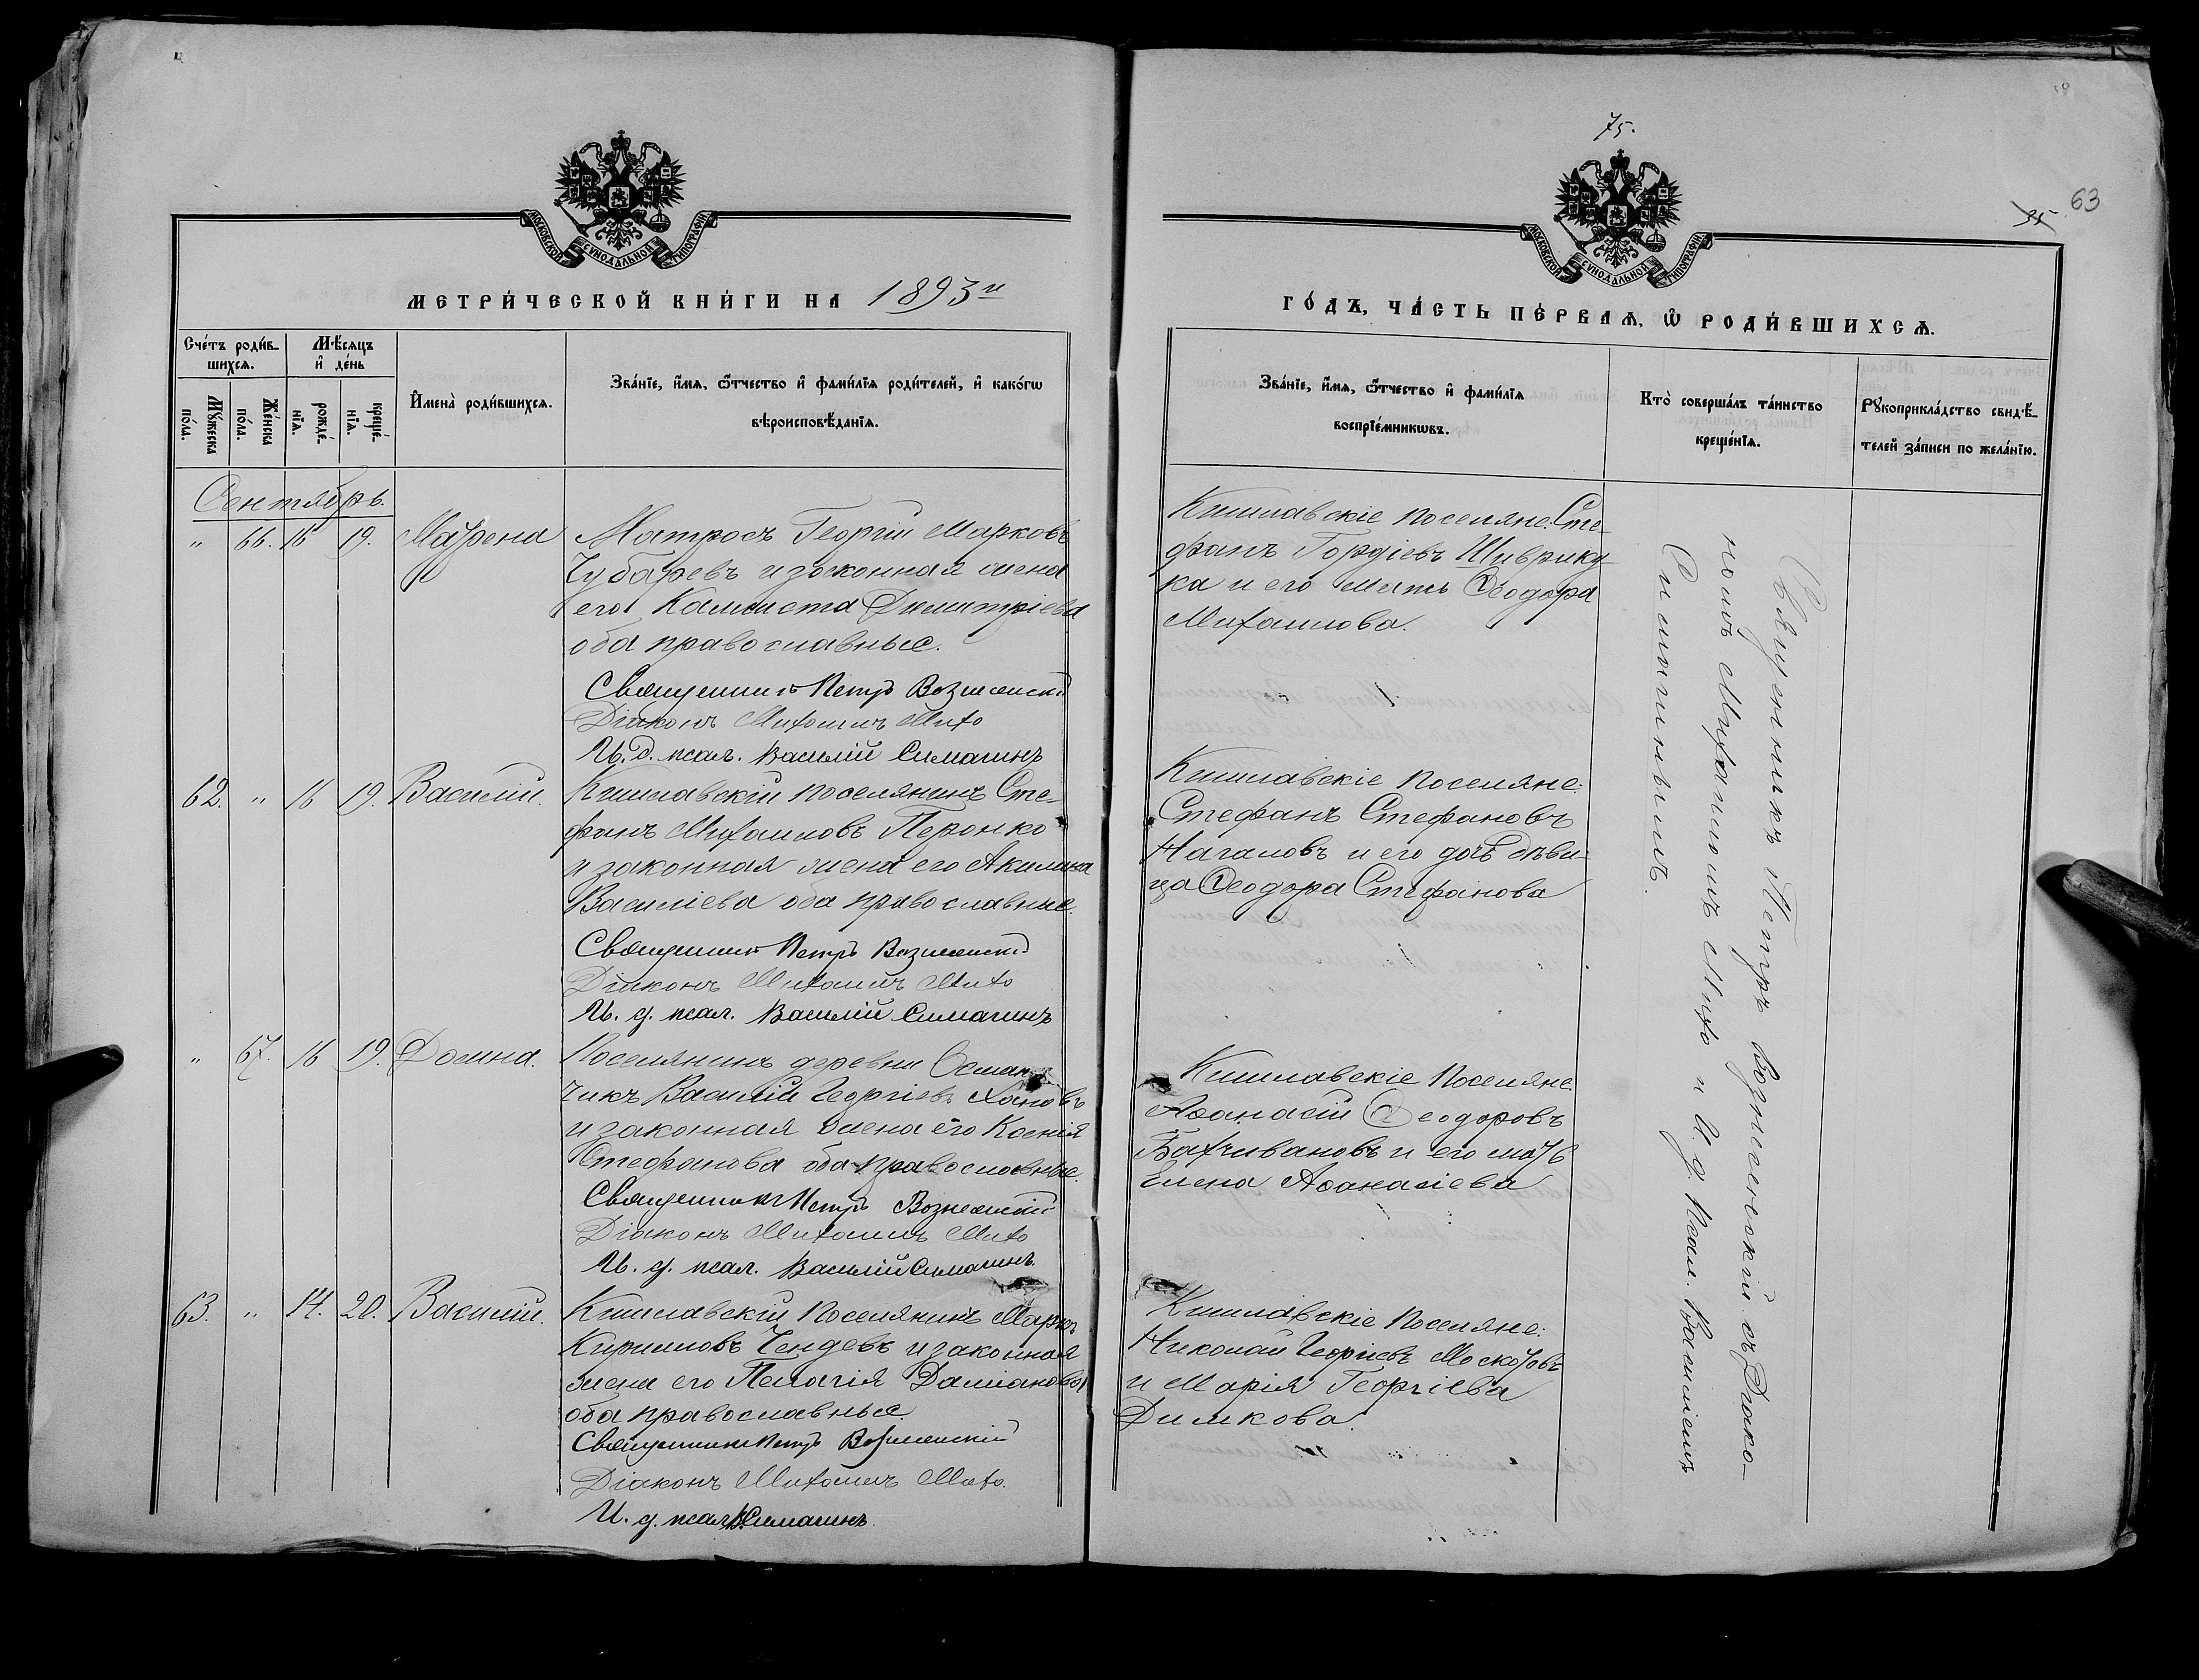 МОСКОВСКОЙ СѴНОДАЛЬНОЙ ТИПОГРАФІИ.
МЕТРИ́ЧЕСКОЙ КНИ́ГИ НА 1893й
Сче́тъ роди́в-
шихсѧ.
Мѣ́сѧцъ
и҆ де́нь
Мꙋ́жеска
по́ла.
Же́нска
по́ла.
рожде́-
нїѧ.
креще́-
нїѧ.
И҆мена̀ роди́вшихсѧ.
Зва́нїе, и҆́мѧ, ѻ҆́тчество и҆ фами́лїѧ роди́телей, и҆ како́гѡ
вѣроисповѣ́данїѧ.
Сентябрь.
" 66. 16 19. Маѳрена
Матросъ Георгій Марковъ
Чубаревъ и законная жена
его Каллиста Димитріева
оба православные.
Священникъ Петръ Вознесенскій
Діаконъ Михаилъ Михо
И. д. псал. Василій Симагинъ
62. " 16 19. Василій.
Кишлавскій поселянинъ Сте-
фанъ Михаиловъ Перонко
и законная жена его Акилина
Василіева оба православные.
Священникъ Петръ Вознесенскій
Діаконъ Михаилъ Михо
И. д. псал. Василій Симагинъ
" 67. 16 19. Домна.
Поселянинъ деревни Осман-
чикъ Василій Георгіевъ Хановъ
и законная жена его Ксенія
Стефанова оба православные.
Священникъ Петръ Вознесенскій
Діаконъ Михаилъ Михо
И. д. псал. Василій Симагинъ.
63. " 17. 20. Василій.
Кишлавскій поселянинъ Маркъ
Кирилловъ Чендевъ и законная
жена его Пелагія Даміанова
оба православные.
Священникъ Петръ Вознесенскій
Діаконъ Михаилъ Михо.
И. д. псал. В. Симагинъ.
75.
63
МОСКОВСКОЙ СѴНОДАЛЬНОЙ ТИПОГРАФІИ.
ГО́ДЪ, ЧА́СТЬ ПЕ́РВАѦ, Ѡ҆ РОДИ́ВШИХСѦ.
Зва́нїе, и҆́мѧ, ѻ҆́тчество и҆ фами́лїѧ
воспрїе́мникѡвъ.
Кто̀ соверша́лъ та́инство
креще́нїѧ.
Рꙋкоприкла́дство свидѣ́-
телей за́писи по жела́нїю.
Кишлавскіе поселяне: Сте-
фанъ Гордіевъ Шиврику-
ка и его мать Ѳеодора
Михаилова.
Кишлавскіе поселяне:
Стефанъ Стефановъ
Нагаловъ и его дочь дѣви-
ца Ѳеодора Стефанова
Кишлавскіе поселяне:
Аѳанасій Ѳеодоровъ
Бахчивановъ и его мать
Елена Аѳанасіева
Кишлавскіе поселяне:
Николай Георгіевъ Москотовъ
и Марія Георгіева
Димкова.
Священникъ Петръ Вознесенскій съ Діако-
номъ Михаиломъ Михо и И. д. Псал. Василіемъ
Симагинымъ.